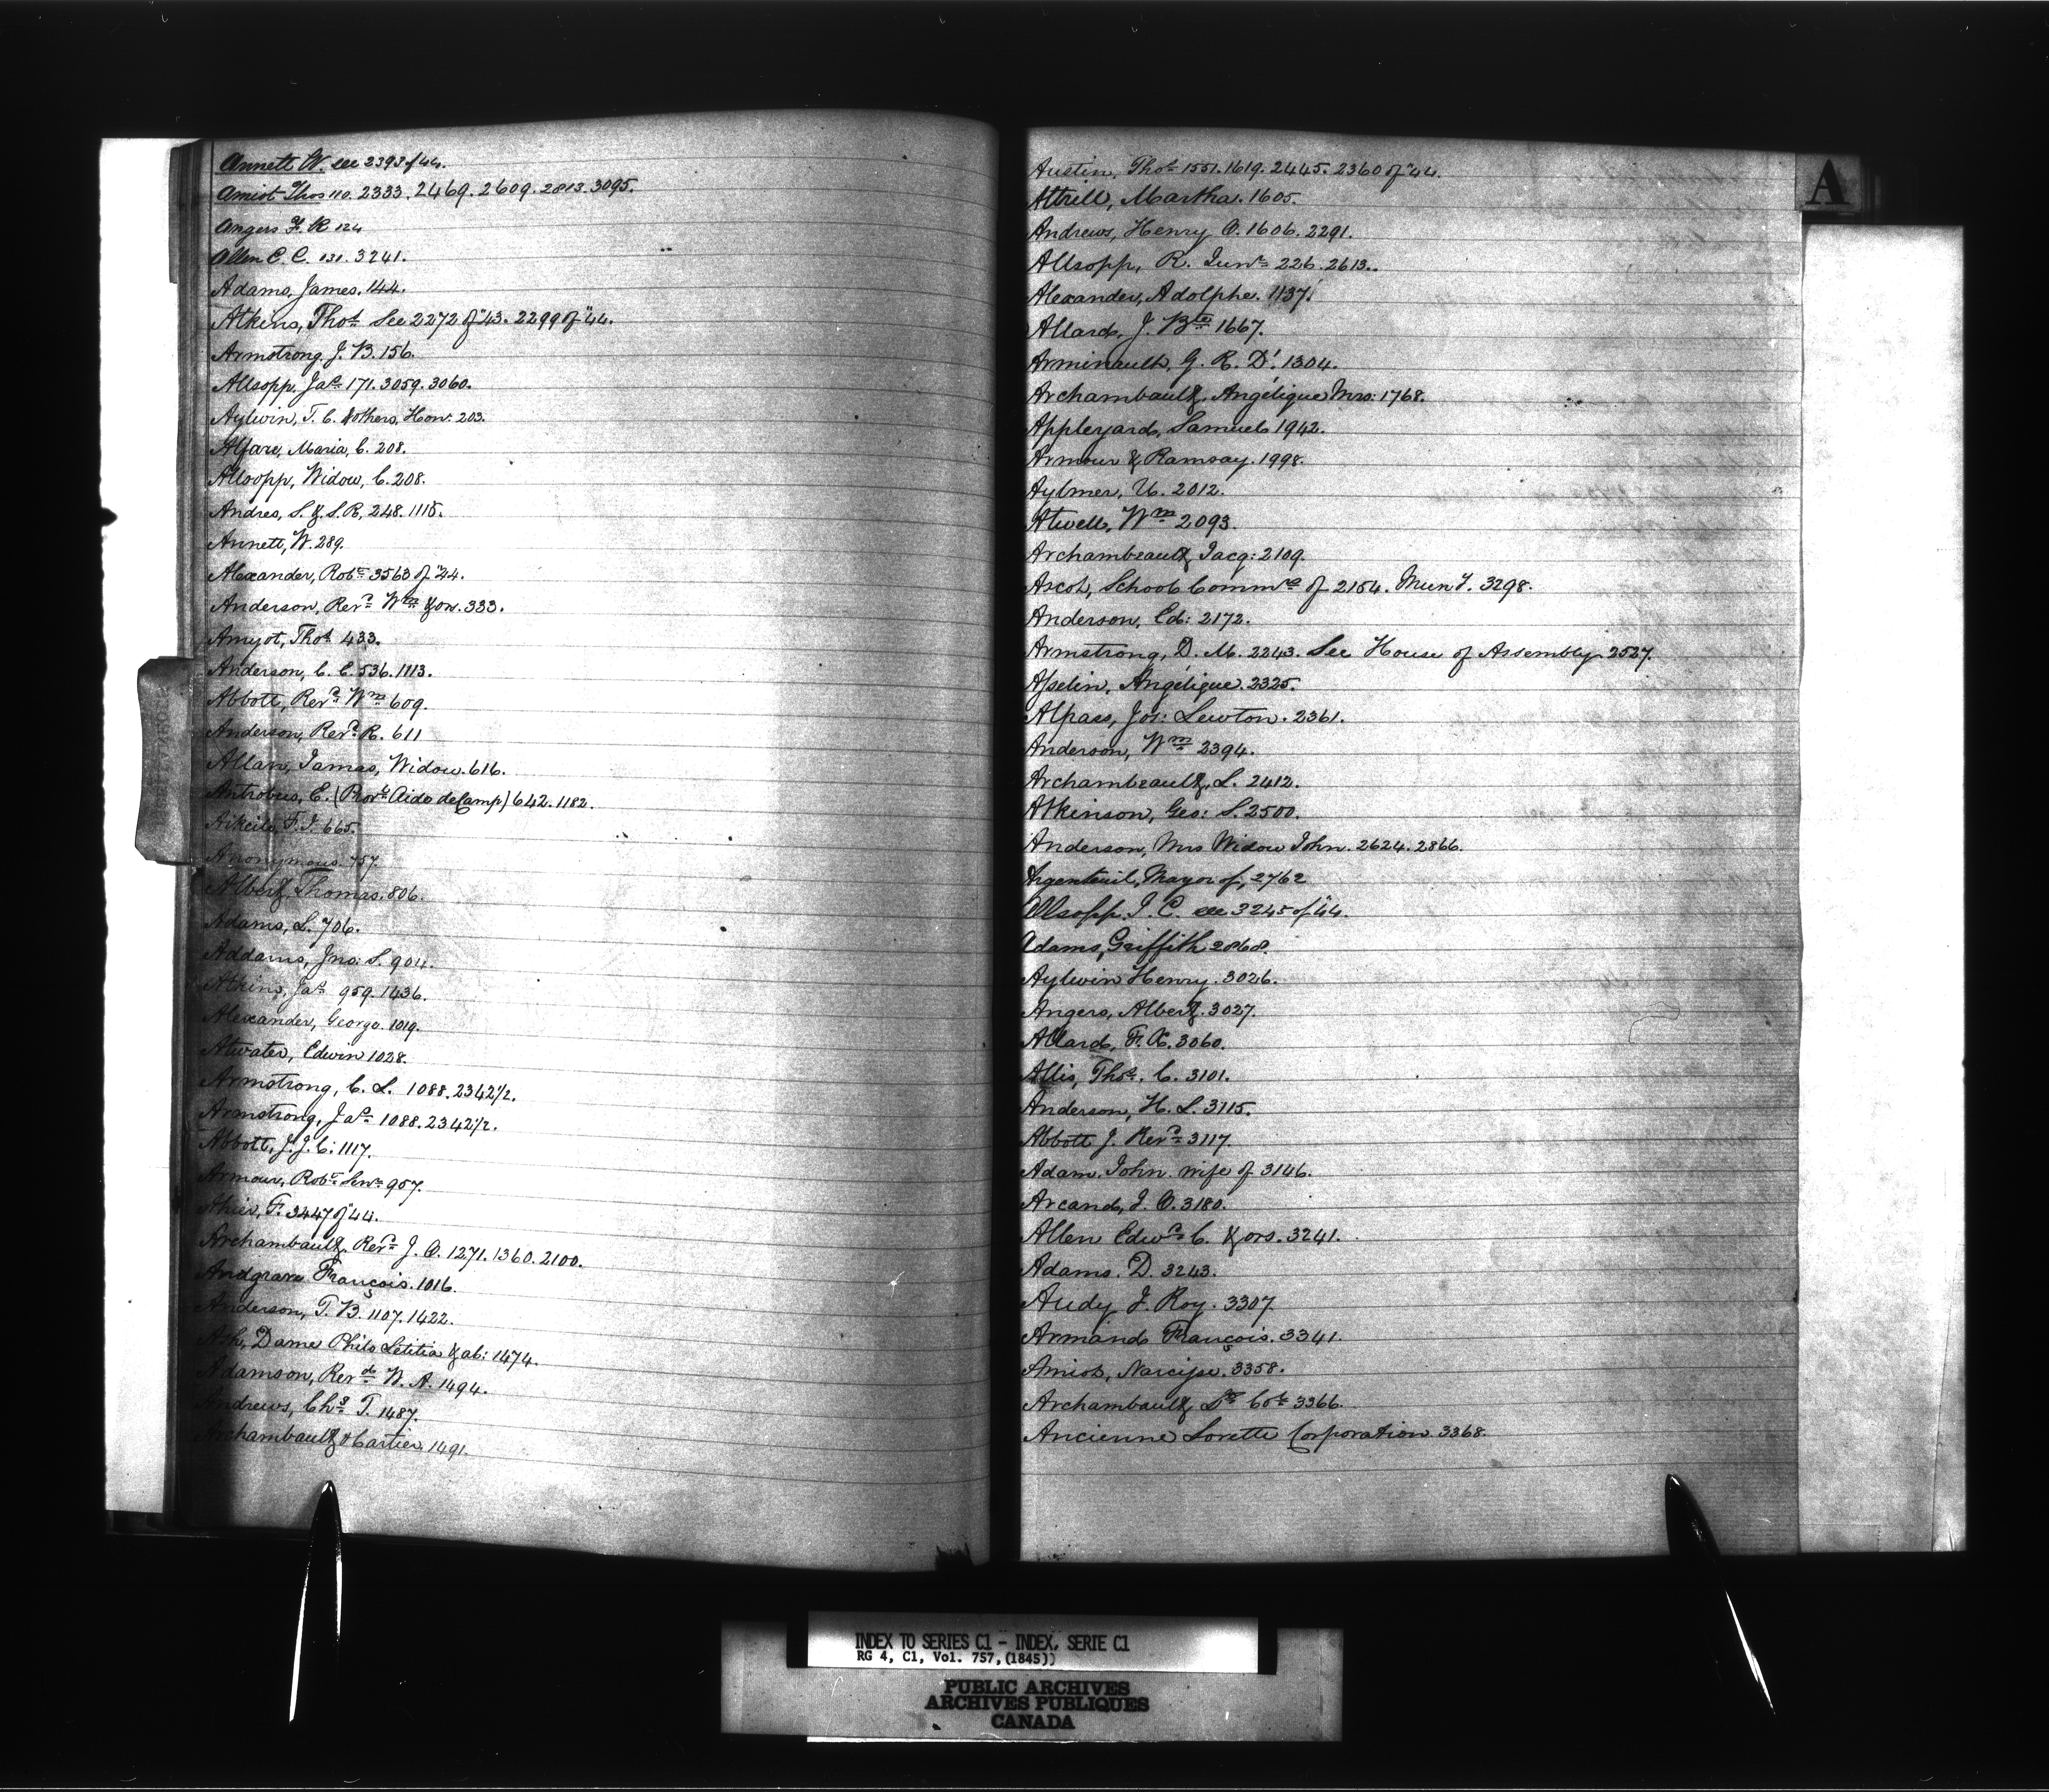 Annett W. see 2393 of 44.
Amiot Thos 110. 2333. 2469. 2609. 2813. 3095.
Angers F. R 124
Allen C. C. 131. 3241.
Adams, James. 144.
Atkins, Thos. See 2272 of "43. 2299 of "44.
Armstrong, J. B. 156.
Allsopp, Jas. 171. 3059. 3060.
Aylwin, T. C. & others, Hon. 203.
Alfare, Maria, C. 208.
Allsopp, Widow, C. 208.
Andres, S. & S. R, 248. 1115.
Annett, W. 289.
Alexander, Robt. 3563 of "44.
Anderson, Revd. Wm & ors. 333.
Amyot, Thos. 433.
Anderson, C. C. 536. 1113.
Abbott, Revd. Wm 609.
Anderson, Revd. R. 611
Allan, James, Widow. 616.
Antrobus, E. (Provl. Aide de Camp) 642. 1182.
F. J. 665.
Anonymous. 757.
Albert, Thomas. 806.
Adams, L. 706.
Addams, Jno: S. 904.
Atkins, Jas. 959. 1436.
Alexander, George. 1019.
Atwater, Edwin 1028.
Armstrong, C. L. 1088. 2342 1/2.
Armstrong, Jas. 1088. 2342 1/2.
Abbott, J. J. C: 1117.
Armour, Robt. Senr. 957.
F. 3447 of "44.
Archambault, Revd. J. O. 1271. 1360. 2100.
Andgrave François. 1016.
Anderson, T. B. 1107. 1422.
Ash, Dame Philo Letitia & al: 1474.
Adamson, Revd. W. A. 1494.
Andrews, Chs. T. 1487.
Archambault & Cartier, 1491.
Austin, Thos. 1551. 1619. 2445. 2360 of "44.
Attrill, Martha. 1605.
Andrews, Henry O. 1606. 2291.
Allsopp, R. Junr. 226. 2613.
Alexander, Adolphe. 1137.
Allard, J. Bte. 1667.
Arminault, G. R. Dr. 1304.
Archambault, Angélique Mrs: 1768.
Appleyard, Samuel 1942.
Armour & Ramsay. 1998.
Aylmer, U. 2012.
Atwell, Wm 2093.
Archambeault, Jacq: 2109.
Ascot, School Commrs of 2154. Muny. 3298.
Anderson, Ed: 2172.
Armstrong, D. M. 2243. See House of Assembly 2527.
Asselin, Angélique. 2325.
Alpass, Jos: Lewton. 2361.
Anderson, Wm 2394.
Archambeault, L. 2412.
Atkinson, Geo: S. 2500.
Anderson, Mrs Widow John. 2624. 2866.
Argenteuil, Mayor of, 2762
Allsopp J. C. see 3245 of "44.
Adams, Griffith 2868.
Aylwin Henry. 3026.
Angers, Albert. 3027.
Allard, F. X. 3060.
Allis, Thos. C. 3101.
Anderson, H. L. 3115.
Abbott J. Revd. 3117.
Adam. John. wife of 3146.
Arcand, J. O. 3180.
Allen Edwd. C. & ors. 3241.
Adams. D. 3243.
Audy J. Roy. 3307.
Armand François. 3341.
Amiot, Narcisse. 3358.
Archambault Ls. 3366.
Ancienne Lorette Corporation. 3368.
A
INDEX TO SERIES C1 - INDEX, SERIE C1
RG 4, C1, Vol. 757, (1845))
PUBLIC ARCHIVES
ARCHIVES PUBLIQUES
CANADA